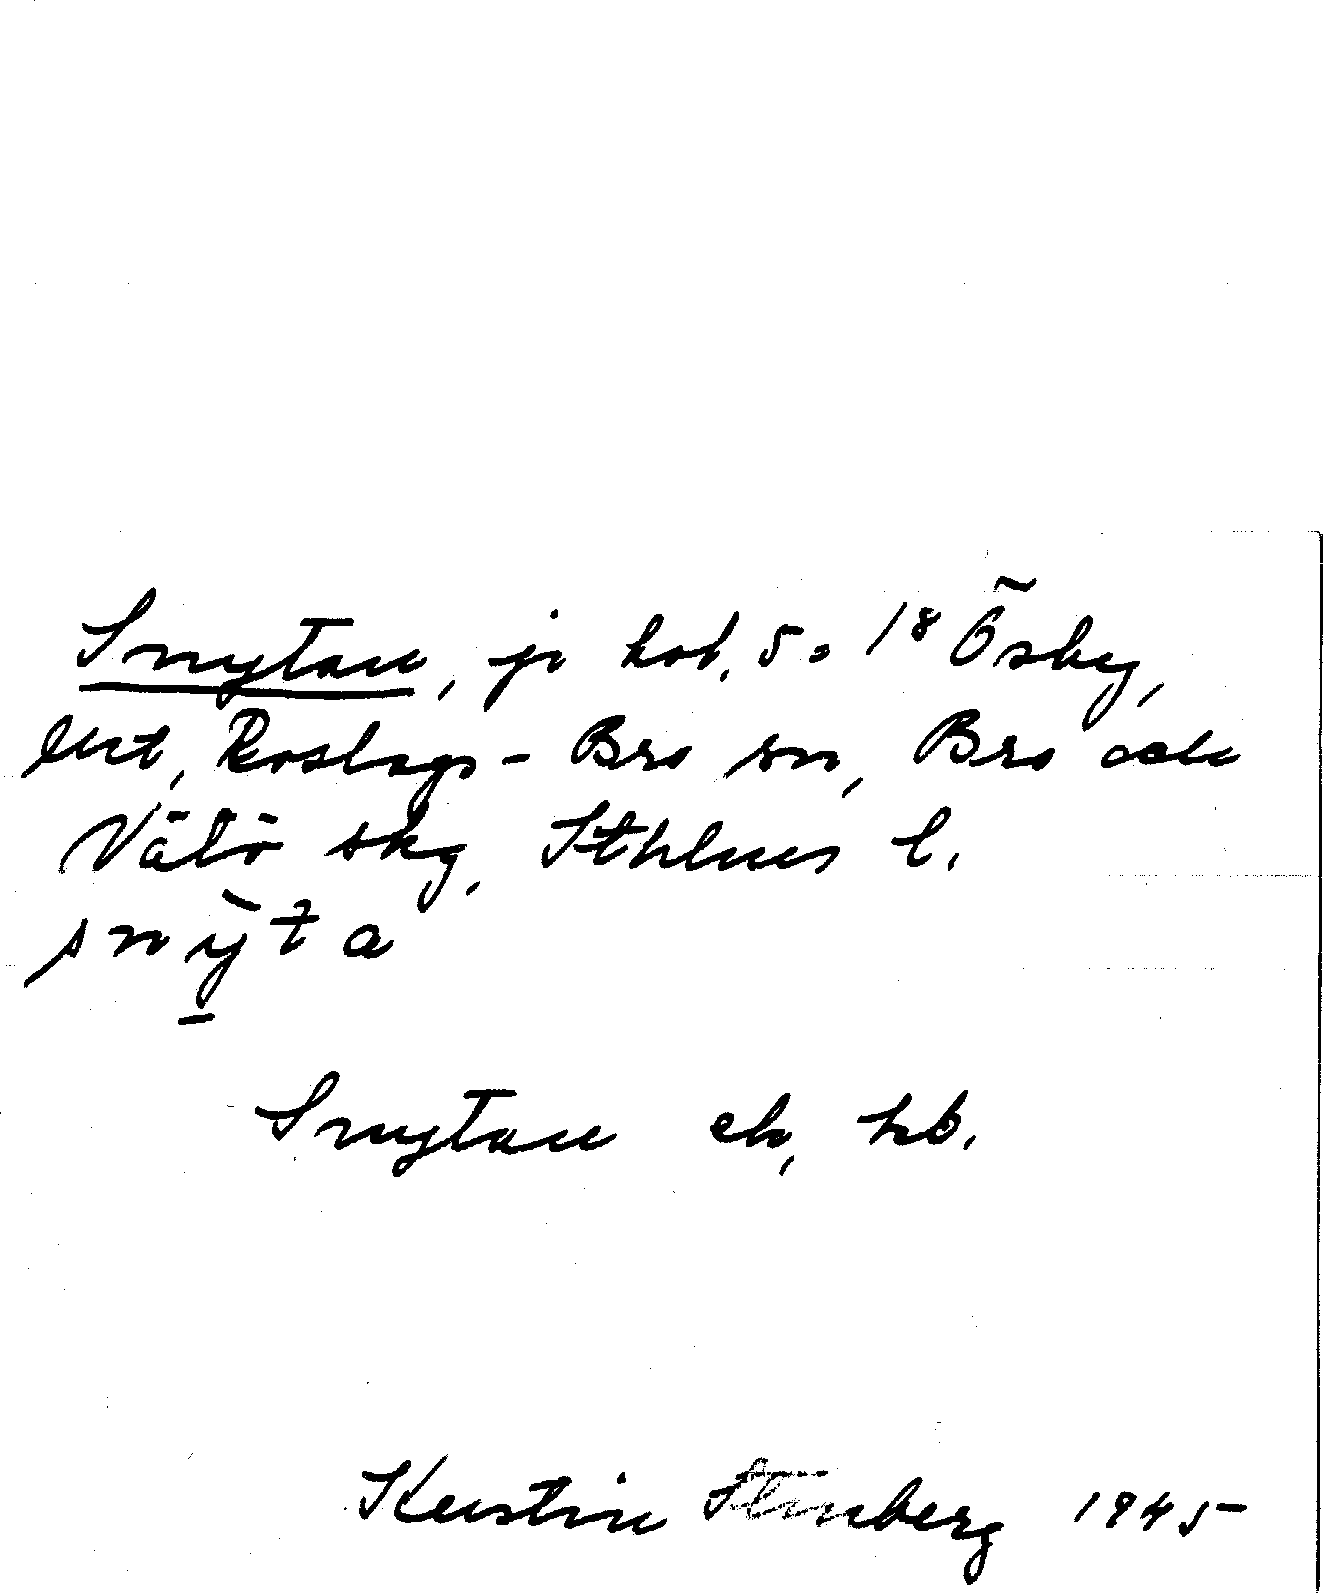 Snytan, jr hot. 5. 18 Ösby,
ent, Roslags-Bro sn, Bro och
Vätö skg, Sthlms l.
snỳta
Snytan ek, hb.
Kerstin Stenberg 1945